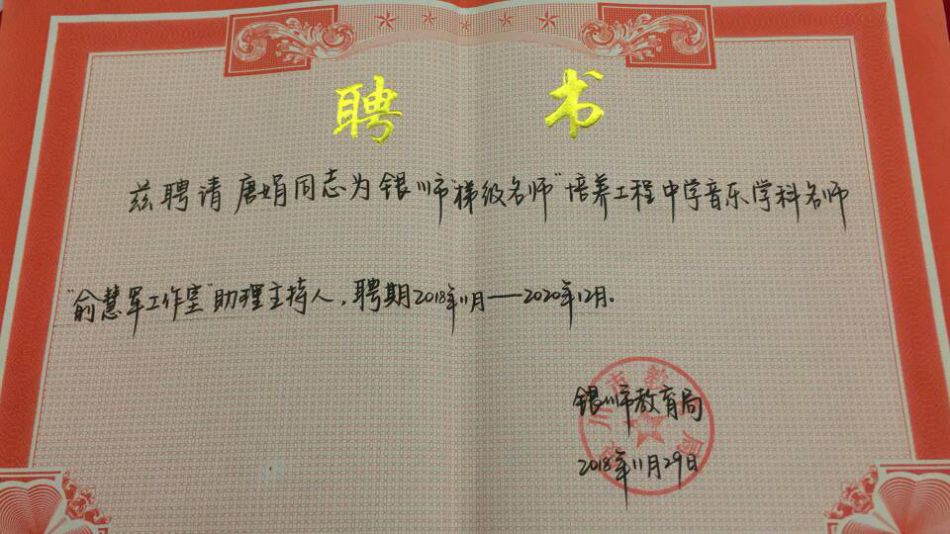 聘 书
兹聘请唐娟同志为银川市"梯级名师"培养工程中学音乐学科名师
"俞慧军工作室"助理主持人，聘期2018年11月——2020年12月。
银川市教育局
2018年11月29日